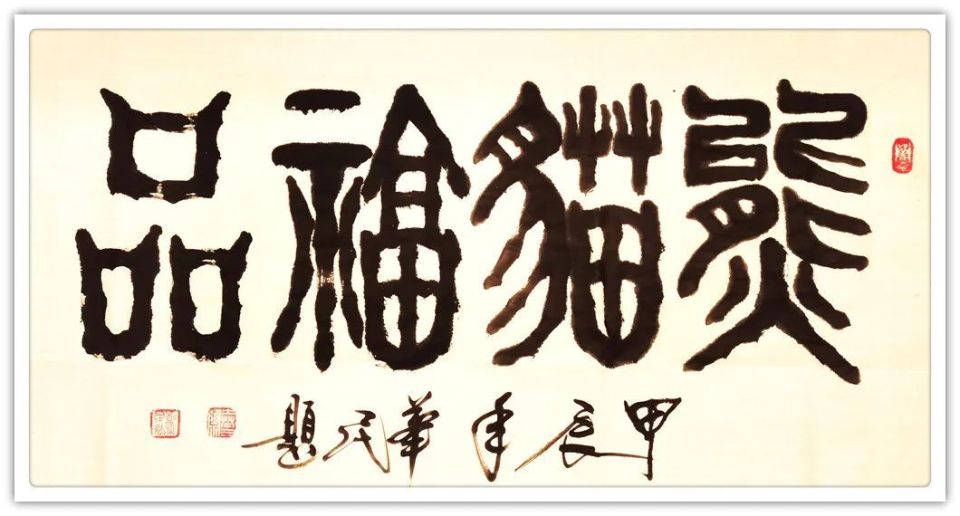 熊貓福品
甲辰年華民題